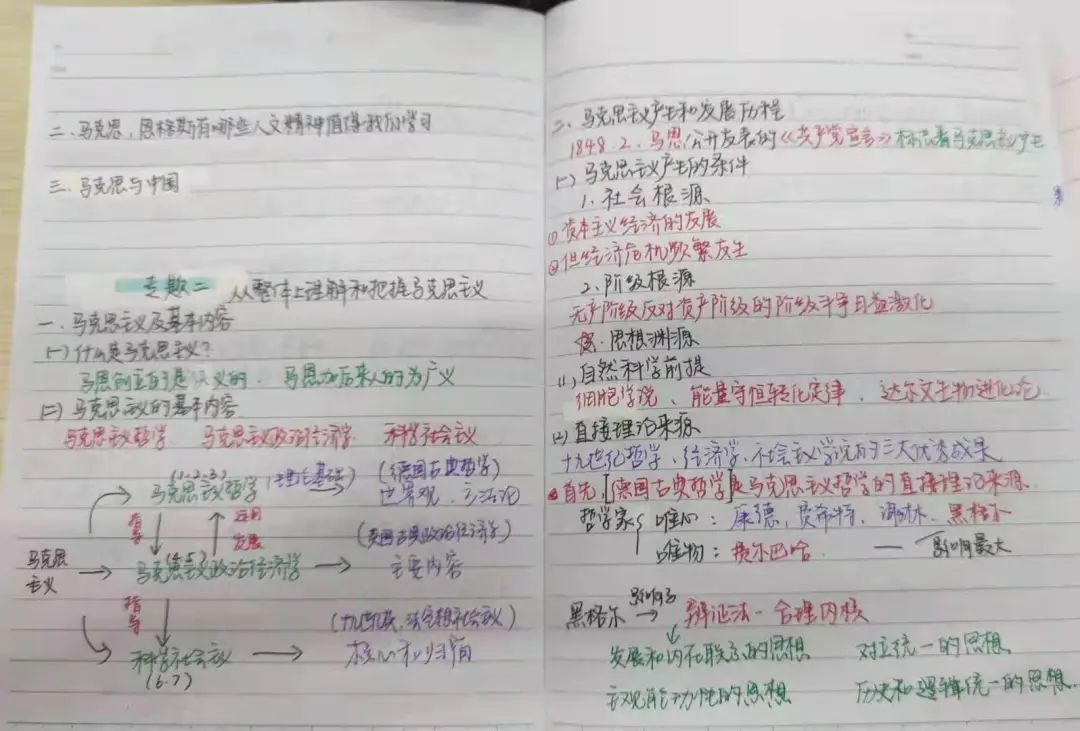 二、马克思，恩格斯有哪些人文精神值得我们学习
三、马克思与中国
专题二 从整体上理解和把握马克思主义
一、马克思主义及基本内容
(一)什么是马克思主义?
马恩创立的是狭义的. 马恩加后来人的为广义
(二)马克思主义的基本内容
马克思主义哲学 马克思主义政治经济学 科学社会主义
(1.2.3) (理论基础) (德国古典哲学)
马克思主义哲学 世界观、方法论
指导 运用 发展 (英国古典政治经济学)
马克思主义 (4.5) 马克思主义政治经济学 主要内容
指导 (九世纪英、法空想社会主义)
科学社会主义 核心和归宿
(6.7)
二、马克思主义产生和发展历程
1848.2. 马恩公开发表的《共产党宣言》标志着马克思主义产生
(一)马克思主义产生的条件
1. 社会根源
①资本主义经济的发展
②但经济危机频繁发生
2. 阶级根源
无产阶级反对资产阶级的阶级斗争日益激化
思想渊源
(1)自然科学前提
细胞学说、能量守恒转化定律、达尔文生物进化论
(2)直接理论来源
十九世纪哲学、经济学、社会主义学说的三大优秀成果
首先,[德国古典哲学]是马克思主义哲学的直接理论来源.
哲学家 唯心: 康德, 费希特, 谢林. 黑格尔
唯物: 费尔巴哈. — 影响最大
黑格尔 影响了 辩证法-合理内核
发展和内在联系的思想 对立统一的思想
主观能动性的思想 历史和逻辑统一的思想.